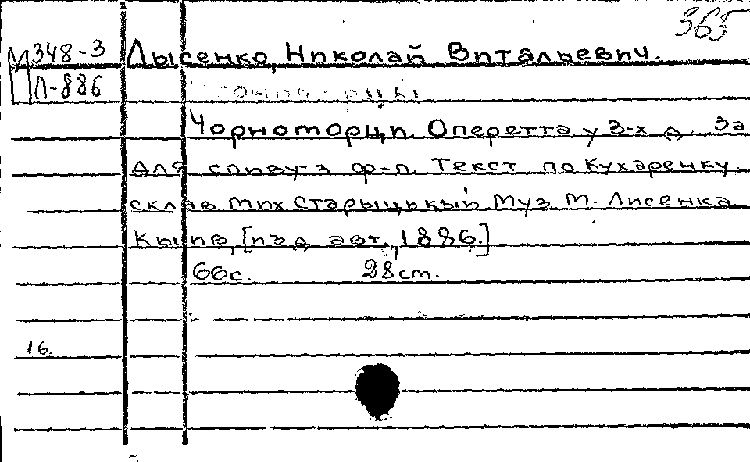 365
М 348-3
Л-886
Лысенко, Николай Витальевич.
Чорноморци. Оперетта у 3-х д. За
для спиву з ф-п. Текст по Кухаренку
склав Мих Старыцькый Муз. М. Лисенка
Кыив, [изд. авт., 1886.]
66с. 28ст.
16.